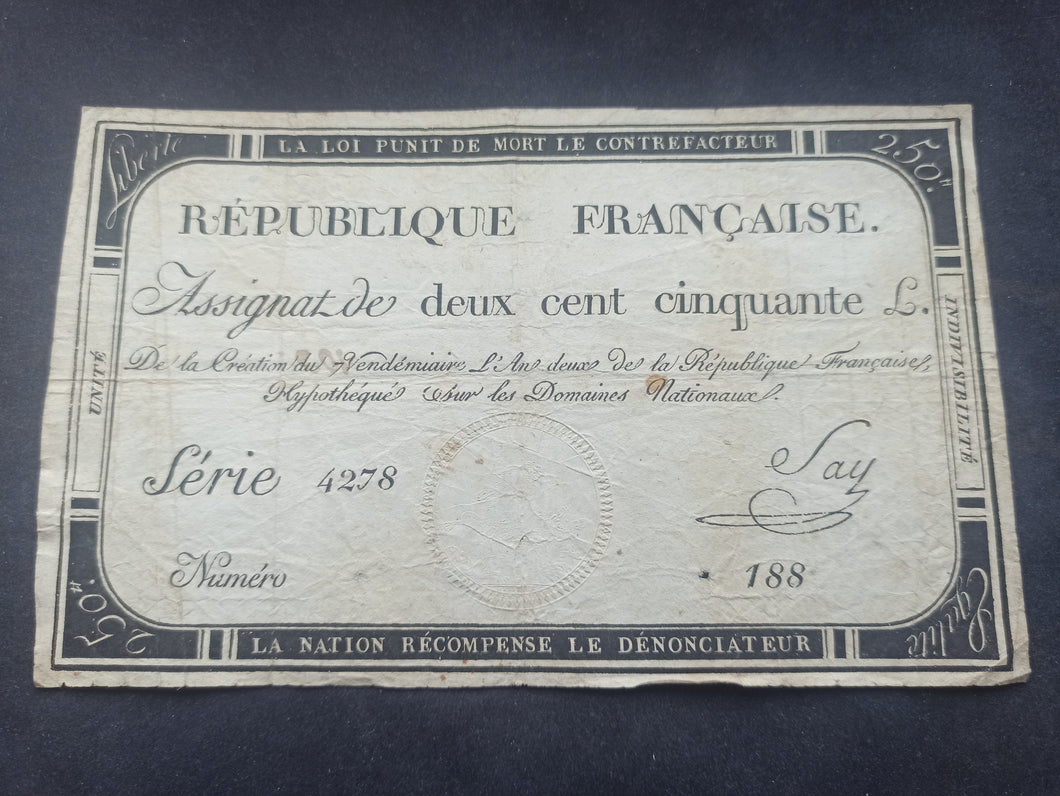 Liberté
LA LOI PUNIT DE MORT LE CONTREFACTEUR
250.ᵗᵗ
RÉPUBLIQUE FRANÇAISE.
Assignat de deux cent cinquante L.
De la Création du 7 Vendémiaire L'An deux de la République Française,
Hypothéqué sur les Domaines Nationaux.
UNITÉ
INDIVISIBILITÉ
Série 4278
Say
Numéro 188
250.ᵗᵗ
LA NATION RÉCOMPENSE LE DÉNONCIATEUR
Egalité